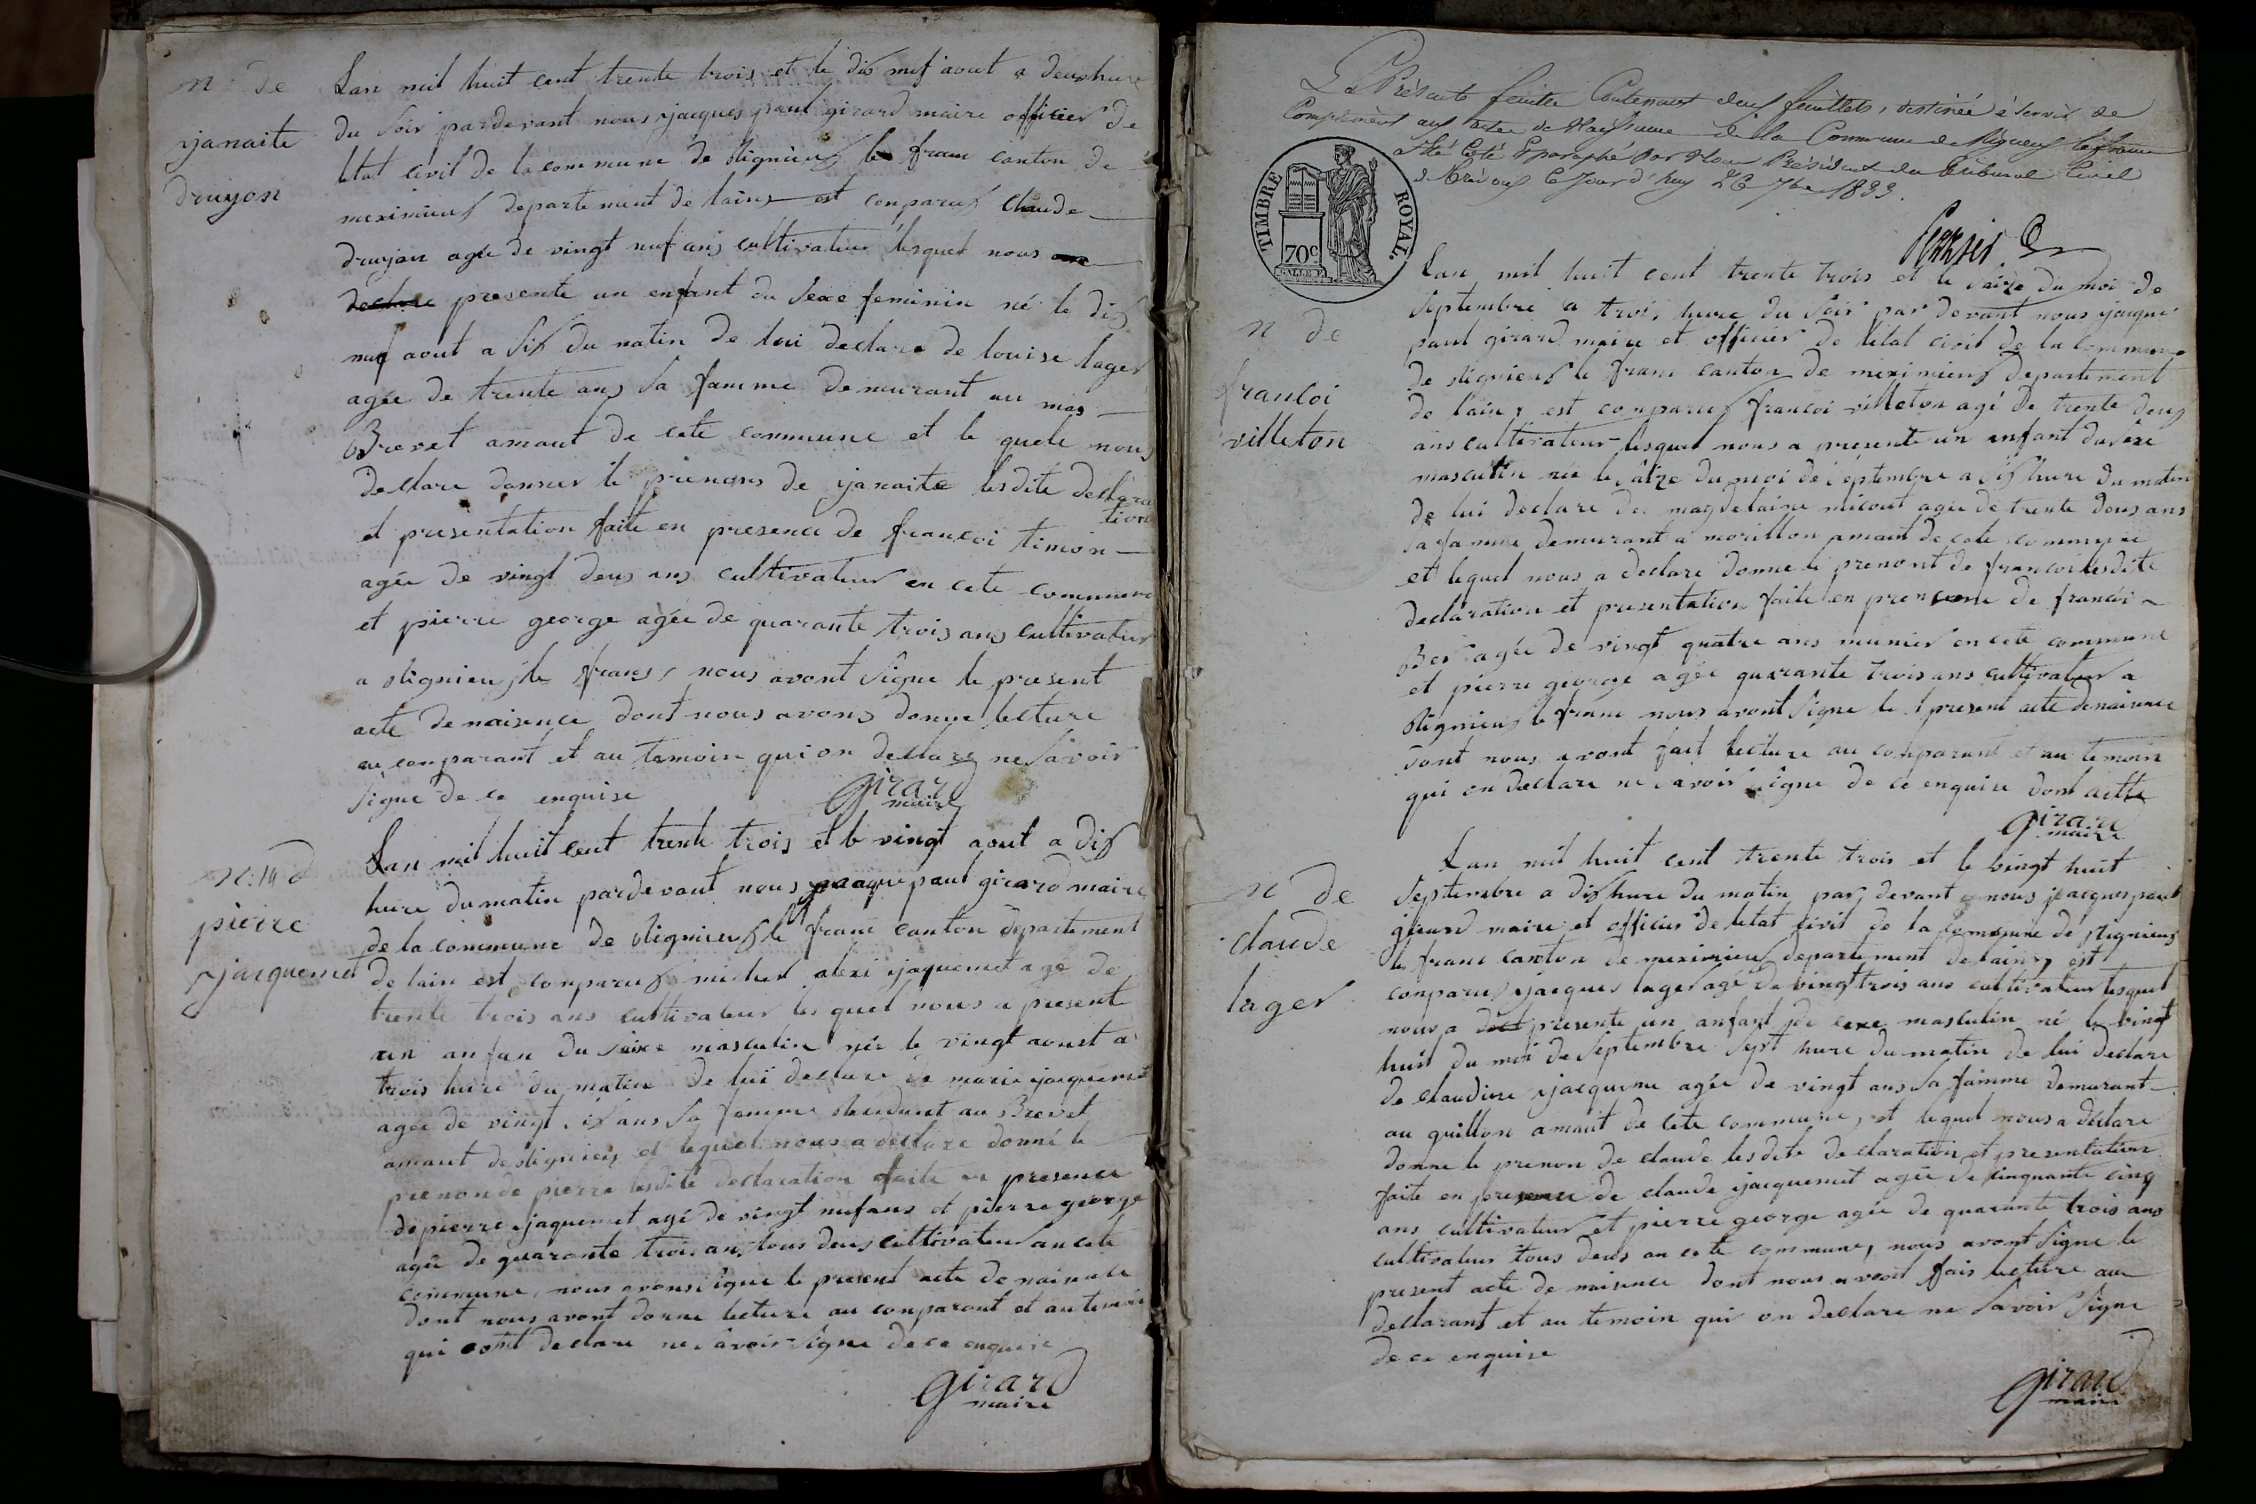 n de
janaite
druyon
Lan mil huit cent trente trois et le dix neuf aout a deux hure
du soir pardevant nous jacques paul girard maire officier de
letat civil de la commune de rignieux le franc canton de
meximieux departement de lains est conparux claude
druyon agée de vingt neuf ans cultivateur lesquel nous
declare presente un enfant du sexe feminin né le dix
neuf aout a six du matin de lui declare de louise lager
agée de trente ans sa famme demurant au mas
Brevet amaut de cete commune et le quele nous
declare donner le prenons de janaite lesdite declara
tion
et presentation faite en presence de francoi timon
agée de vingt deux ans cultivateur en cete commune
et pierre george agée de quarante trois ans cultivateur
a rignieux le franc, nous avont signe le present
acte de naisence dont nous avons donne lecture
au conparant et au temoin qui on declare ne savoir
signe de ce enquise
girard
maire
n: 14 d
pierre
jacquemet
Lan mil huit cent trente trois et le vingt aout a dix
hure du matin pardevant nous jacque paul girard maire
de la commune de rignieux le franc canton departement
de lain est conparux michel alexi jaquemet agé de
trente trois ans cultivateur les quel nous a present
un anfan du saixe masculin née le vingt aoust a
trois hure du matin de lui declare de marie jacquemet
agée de vingt six ans sa femme residant au Brevet
amaut de rignieux et lequel nous a declare donné le
prenon de pierre lesdite declaration faite en presence
de pierre jaquemet agé de vingt nuf ans et pierre george
agée de quarante trois ans tous deux cultivateur an cete
commune, nous avons signe le present acte de naisence
dont nous avont donne lecture au conparant et au temoin
qui ont declare ne savoir signe de ce enquise
girard
maire
La Présente feuille Contenant deux feuillets, destinée à servir de
Complément aux actes de Naissance de la Commune de Rignieux le franc
a été Coté & paraphé Par Nous Président du tribunal Civil
de Trévoux Ce jour d'huy 26 7bre 1833.
TIMBRE ROYAL
70c
n de
francoi
villeton
Lan mil huit cent trente trois et le saize du moi de
septembre a trois hure du soir par devant nous jacque
paul girard maire et officier de létat civil de la commune
de rignieux le franc canton de meximieux departement
de lain, est conparux francoi villeton agé de trente deux
ans cultivateur lesquel nous a presente un enfant du sexe
masculin née le saize du moi de septembre a six hure du matin
de lui declare de magdelaine micout agée de trente deux ans
sa famme demurant a morillon amaut de cete commune
et lequel nous a declare donne le prenont de francoi lesdite
declaration et presentation faite en presence de francoi
Ber agée de vingt quatre ans meunier en cete commune
et pierre george agée quarante trois ans cultivateur a
rignieux le franc nous avont signe le present acte de naisence
dont nous avont fait lecture au conparant et au temoin
qui on declare ne savoir signe de ce enquise dont actte
girard
maire
n de
claude
lager
Lan mil huit cent trente trois et le vingt huit
septembre a dix hure du matin par devant nous jacques paul
girard maire et officier de letat civil de la commune de rignieux
le franc canton de meximieux departement de lain, est
conparux jacques lager agé de vingt trois ans cultivateur lesquel
nous a presente un anfant de cexe masculin né le vingt
huit du moi de septembre sept hure du matin de lui declare
de claudine jacqueme agée de vingt ans sa famme demurant
au guillon amaut de cete commune, et lequel nous a declare
donne le prenon de claude lesdite declaration et presentation
faite en presence de claude jacquemet agée de cinquante cinq
ans cultivateur et pierre george agée de quarante trois ans
cultivateur tous deux an cete commune, nous avont signe le
present acte de naisence dont nous avont fais lecture au
declarant et au temoin qui on declare ne savoir signe
de ce enquise
girard
maire